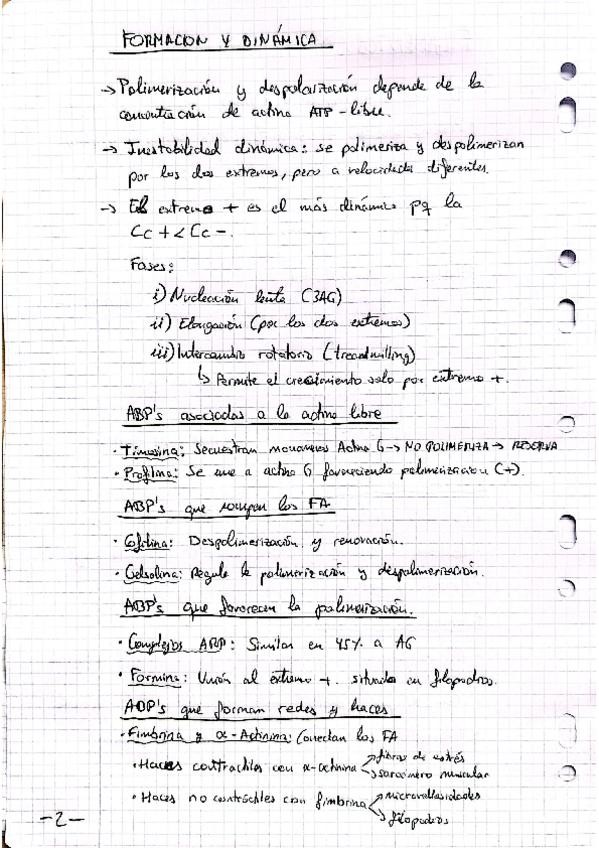 FORMACION Y DINÁMICA
→ Polimerización y despolarización depende de la
concentración de actina ATP-libre.
→ Inestabilidad dinámica: se polimeriza y despolimerizan
por los dos extremos, pero a velocidades diferentes.
→ El extremo + es el más dinámico pq la
Cc + < Cc -.
Fases:
i) Nucleación lenta (3AG)
ii) Elongación (por los dos extremos)
iii) Intercambio rotatorio (treadmilling)
↳ Permite el crecimiento solo por extremo +.
ABP's asociadas a la actina libre
· Timosina: Secuestran monomeros Actina G → NO POLIMERIZA → RESERVA
· Profilina: Se une a actina G favoreciendo polimerizacion (+).
ABP's que rompen los FA
· Cofilina: Despolimerización y renovación.
· Gelsolina: Regula la polimerización y despolimerización.
ABP's que favorecen la polimerización.
· Complejos ARP: Similar en 45% a AG
· Formina: Unión al extremo +. situada en filopodios.
ABP's que forman redes y haces
· Fimbrina y α-Actinina: Conectan los FA
· Haces contráctiles con α-actinina → fibras de estrés
→ sarcómero muscular
· Haces no contráctiles con fimbrina → microvellosidades
→ filopodios
-2-